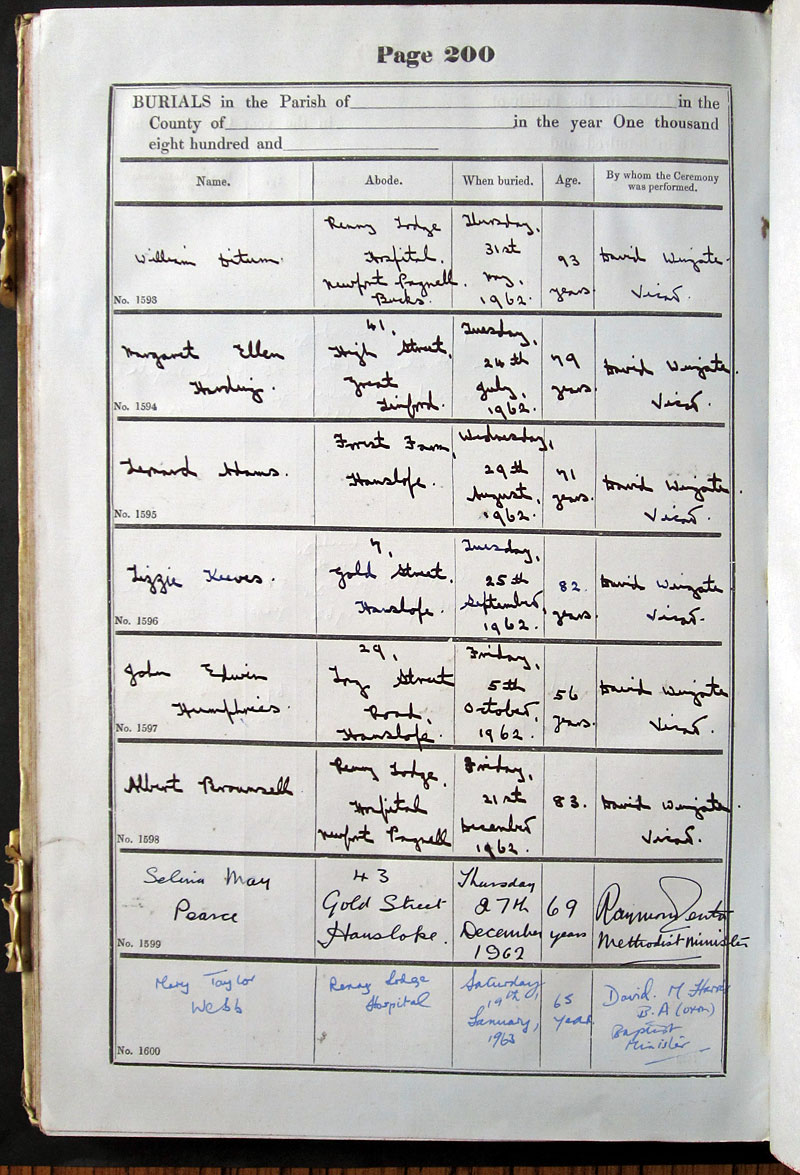 Page 200
BURIALS in the Parish of in the
County of in the year One thousand
eight hundred and
Name. Abode. When buried. Age. By whom the Ceremony
was performed.
William
Renny Lodge
Hospital.
Newport Pagnell.
Bucks.
Thursday,
31st
May,
1962.
93
years.
David Wingate.
Vicar.
No. 1593
Margaret Ellen
Harding.
41,
High Street,
Great
Linford.
Tuesday,
24th
July,
1962.
79
years.
David Wingate.
Vicar.
No. 1594
Lenard Adams.
Forest Farm,
Hanslope.
Wednesday,
29th
August,
1962.
71
years.
David Wingate.
Vicar.
No. 1595
Lizzie Keeves.
7,
Gold Street.
Hanslope.
Tuesday,
25th
September,
1962.
82
years.
David Wingate
Vicar.
No. 1596
John Edwin
Humphries.
29,
Street
Road,
Hanslope.
Friday,
5th
October,
1962.
56
years.
David Wingate
Vicar.
No. 1597
Albert Brownsell
Renny Lodge,
Hospital
Newport Pagnell
Friday,
21st
December
1962.
83.
David Wingate
Vicar.
No. 1598
Selina May
Pearce
43
Gold Street
Hansloke.
Thursday
27th
December
1962
69
years
Raymond
Methodist Minister
No. 1599
Mary Taylor
Webb
Renny Lodge
Hospital
Saturday
19th,
January,
1963
65
years
David. M Harris
B.A (Oxon)
Baptist
Minister
No. 1600